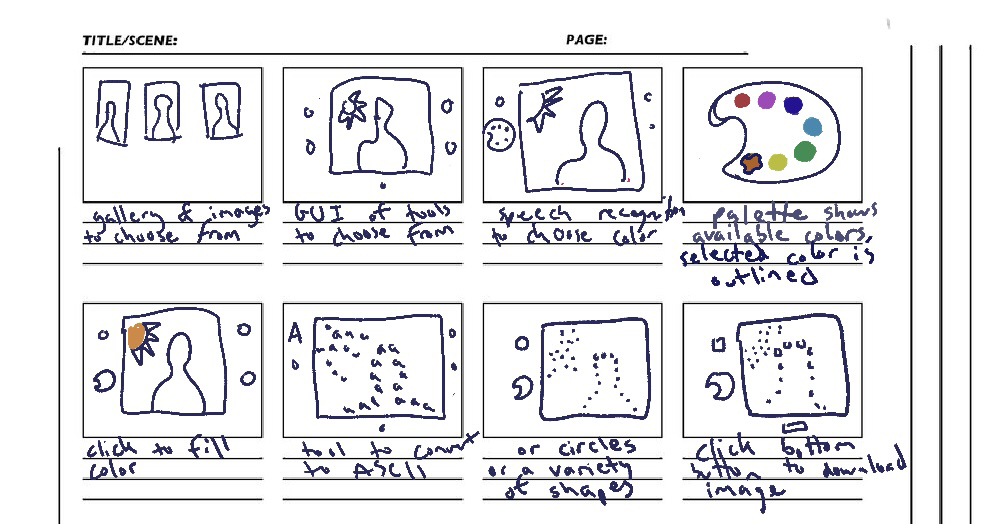 TITLE/SCENE:
PAGE:
gallery of images
to choose from
GUI of tools
to choose from
speech recognition
to choose color
palette shows
available colors,
selected color is
outlined
click to fill
color
A
ana
aa
aa
a a
aaa
a a a
tool to convert
to ASCII
or circles
or a variety
of shapes
Click bottom
button to download
image